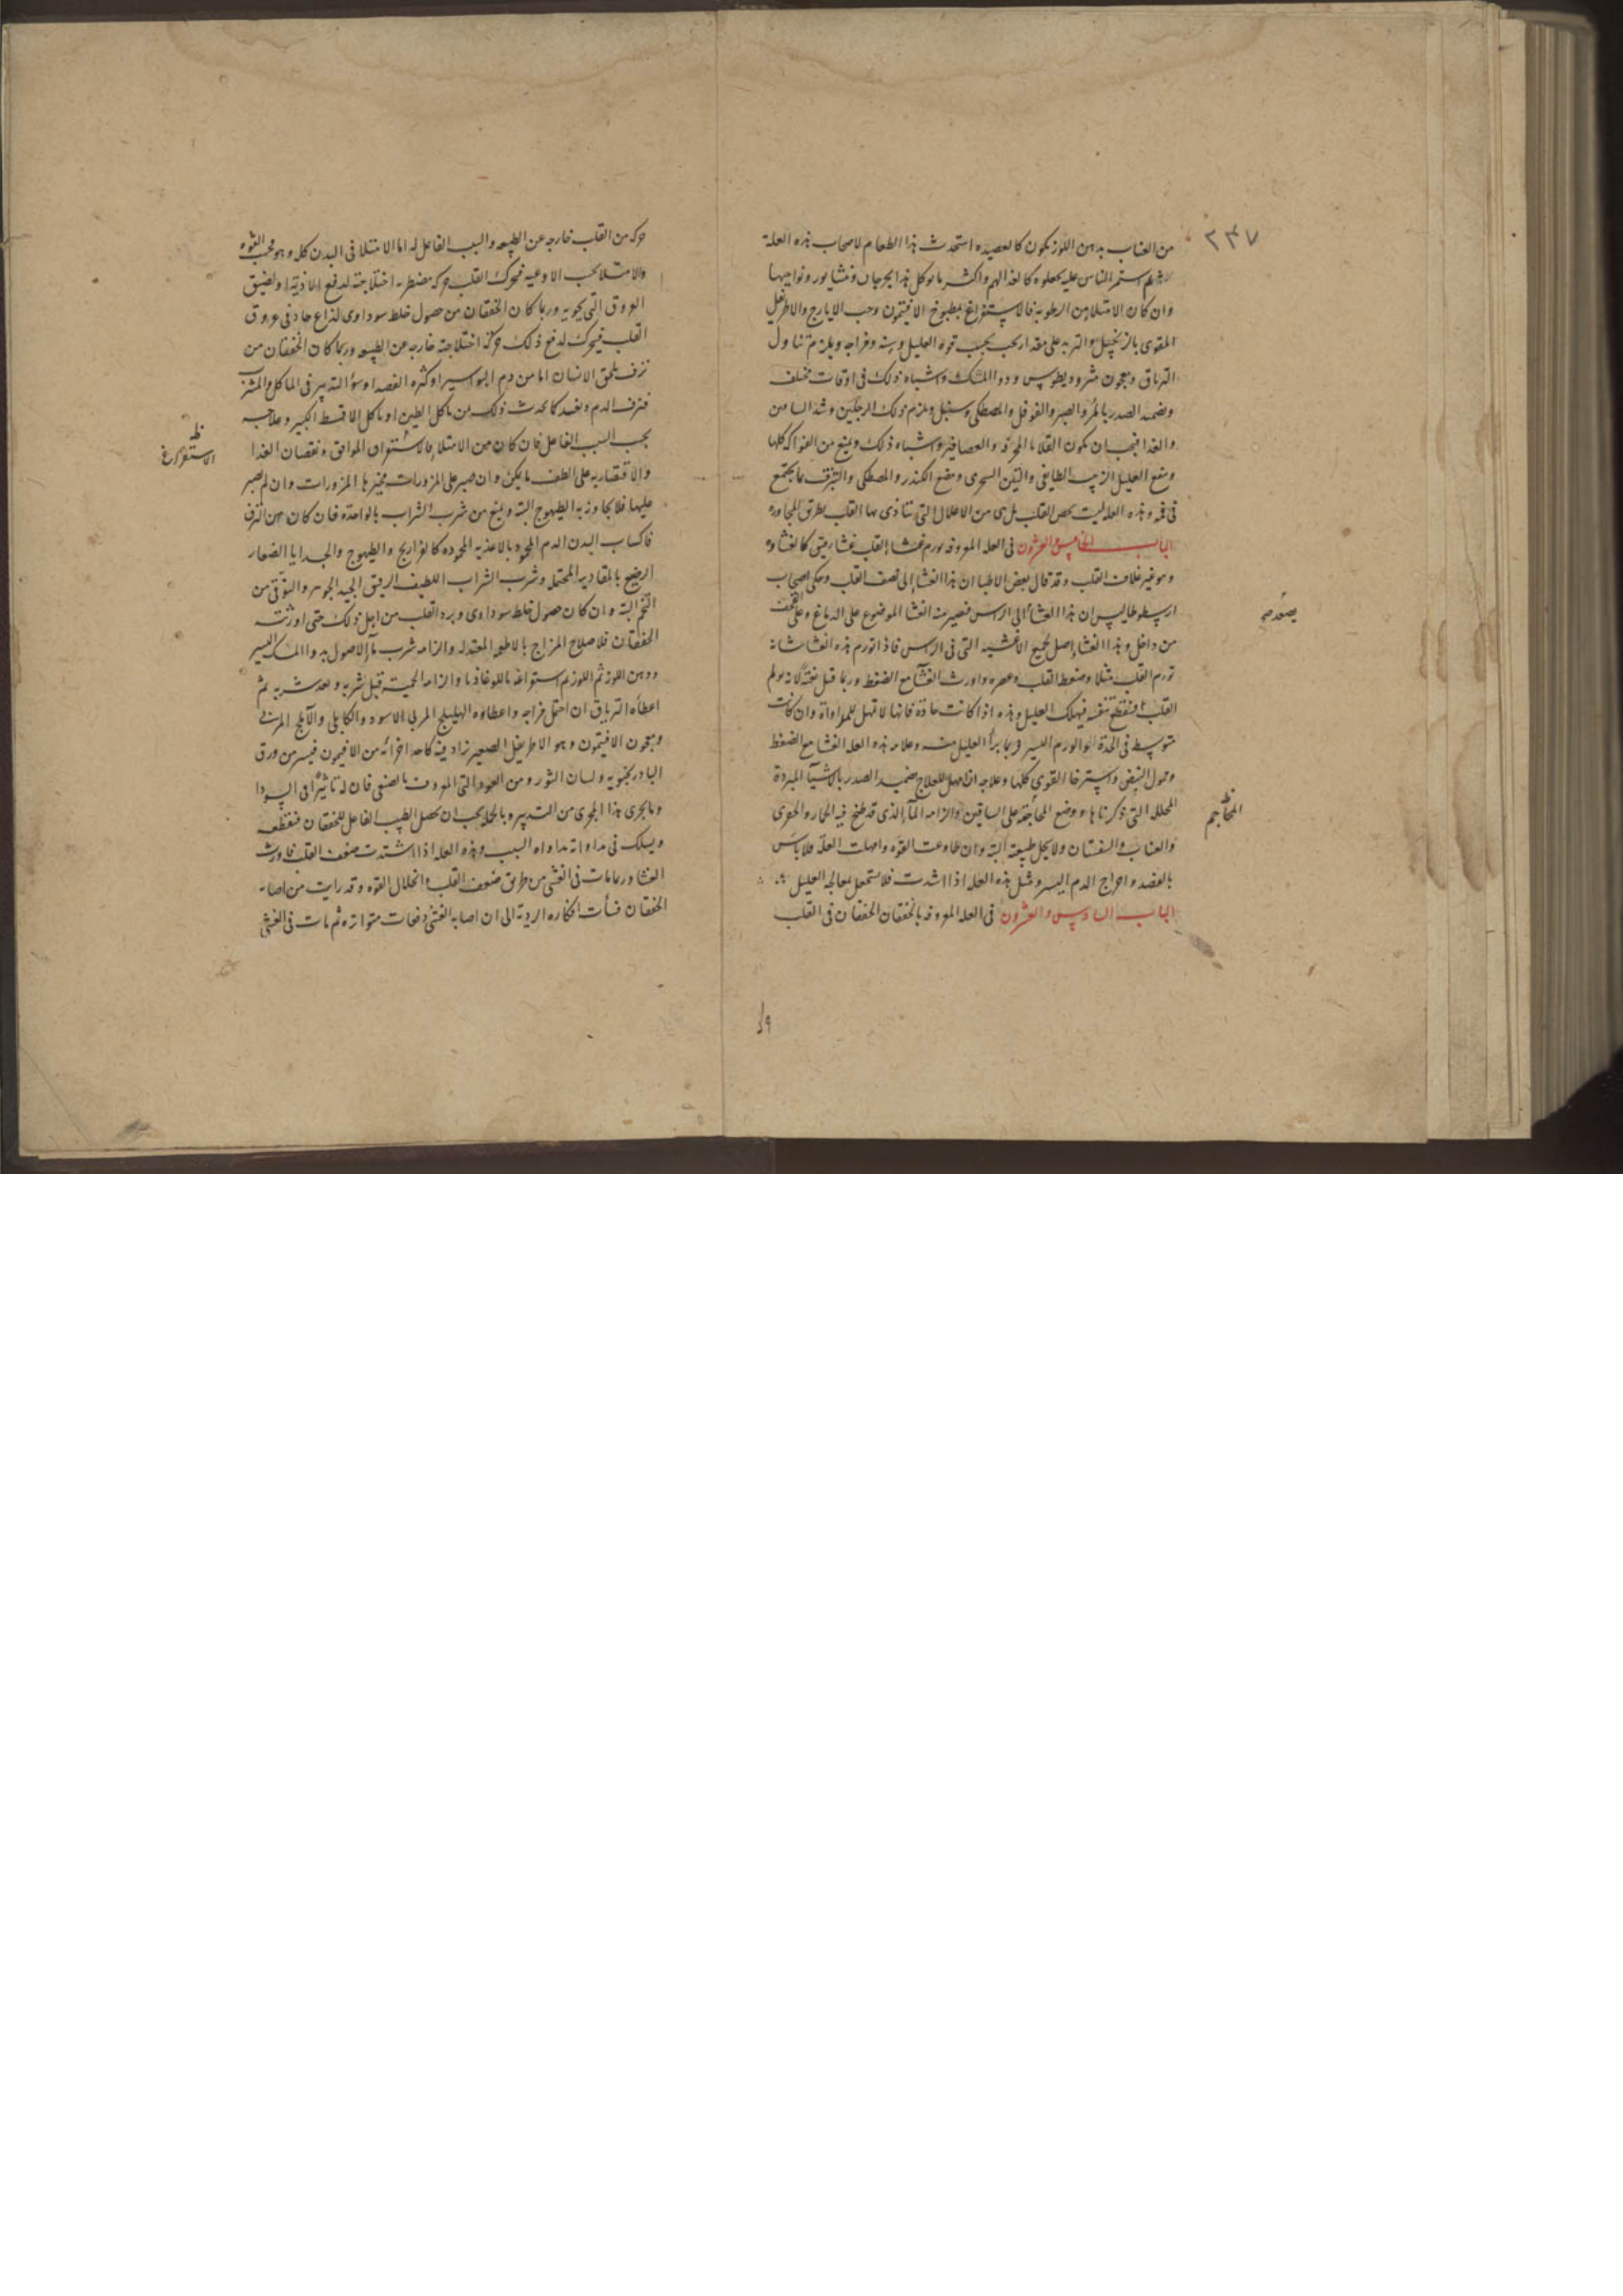 ٢٣٧
من العناب بدهن اللوز يكون كالعصيده استحدث هذا الطعام لاصحاب هذه العلة
ثم استمر الناس عليه يجعلوه كالغذا لهم واكثر ما يوكل هذا بجرجان ونيشابور ونواحيها
وان كان الامتلا من الرطوبة فالاستفراغ بمطبوخ الافيتمون وحب الايارج والاطريفل
المقوى بالزنجبيل والتربد على مقدار يجب بحسب قوة العليل وسنه ومزاجه ويلزم تناول
الترياق ومعجون مثروديطوس ودوا المسك واشباه ذلك فى اوقات مختلفه
ويضمد الصدر بالمر والصبر والفوفل والمصطكى وسنبل ويلزم ذلك الرجلين وشد الساقين
والغذا فيجب ان يكون القلايا المحرقه والعصافير واشباه ذلك ويمنع من الفواكه كلها
ومنع العليل الزبيب الطايفى والتين السجزى ومضغ الكندر والمصطكى والتبزق بما يجتمع
فى فمه وهذه العله ليست تخص القلب بل هى من الاعلال التى يتاذى بها القلب بطريق المجاورة
الباب الخامس والعشرون فى العله المعروفه بورم غشا القلب غشا رقيق كالغشاوه
وهو غير غلاف القلب وقد قال بعض الاطبا ان هذا الغشا الى نصف القلب وحكى اصحاب
ارسطوطاليس ان هذا الغشا الى الراس فتصير منه الغشا الموضوع على الدماغ وعلى القحف
يصعد صح
من داخل وهذا الغشا اصل لجميع الاغشيه التى فى الراس فاذا تورم هذه الغشا شانه
تورم القلب مثلا وضغط القلب وعصره واورث الغشى مع الضغط وربما قتل بغتة لانه يولم
القلب فينقطع نفسه فيهلك العليل وهذه اذا كانت حادة فانها لا تمهل للمداواة وان كانت
متوسط فى الحدة او الورم اليسير فربما يبرأ العليل منه وعلامه هذه العله الغشا مع الضغط
وتحول النبض واسترخا القوى كلها وعلاجه اذا مهل للعلاج ضميد الصدر بالاشيآ المبردة
المحلله التى ذكرناها ووضع المحاجمة على الساقين والزامه المآ الذى قد طبخ فيه الخيار والحورى
ظ المحاجم
والعناب والسفستان ولا يحل طبيعته البته وان طاوعت القوه وامهلت العلة فلا باس
بالفصد واخراج الدم اليسير ومثل هذه العله اذا اشتدت فلا تستعجل بمعالجه العليل
الباب السادس والعشرون فى العله المعروفه بالخفقان الخفقان فى القلب
حركه من القلب خارجه عن الطبيعه والسبب الفاعل له اما الامتلا فى البدن كله وهو بحسب القوه
والامتلا بحسب الاوعيه فيحرك القلب حركه مضطربه اختلاجية لدفع الاذيّة او لضيق
العروق التى تحويه وربما كان الخفقان من حصول خلط سوداوى لذاع حاد فى عروق
القلب فيتحرك لدفع ذلك حركة اختلاجية خارجه عن الطبيعه وربما كان الخفقان من
نزف يلحق الانسان اما من دم البواسير او كثره الفصد او سوء التدبير فى الماكل والمشرب
فنزف الدم ونفسه كما يحدث ذلك من ياكل الطين او ياكل الاقسط الكبير وعلاجه
بحسب السبب الفاعل فان كان من الامتلا فالاستفراق الموافق ونقصان الغذا
ظ الاستفراغ
والاقتصار به على الطف ما يكون وان صبر على المزورات فخيرها المزورات وان لم يصبر
عليها فلا يجاوز به الطيهوج البته ويمنع من شرب الشراب بالواحدة فان كان من النزف
فاكساب البدن الدم المحمود بالاغذيه المحموده كالفراريج والطيهوج والجدايا الصغار
الرضيع بالمقادير المحتمله وشرب الشراب اللطيف الريق الجيد الجوهر والتوقى من
التخم البته وان كان حصول خلط سوداوى وبرد القلب من اجل ذلك حتى اورثته
الخفقان فلاصلاح المزاج بالاطعمه المعتدله والزامه شرب مآ الاصول بدوا المسك اليسير
ودهن اللوز ثم اللوز ثم استفراغه باللوغاذيا والزامه الحميه قبل شربه وبعد شربه ثم
اعطآه الترياق ان احتمل مزاجه واعطاوه الهليلج المربى الاسود والكابلى والآملج المربى
ومعجون الافيتمون وهو الاطريفل الصغير زاد فيه كاحد اجزائه من الافيتمون فيسير من ورق
البادرنجبويه ولسان الثور ومن العود التى المعروف بالصنفى فان له تاثيرًا فى السودا
وما يجرى هذا المجرى من التدبير وبالجمله يجب ان يحصل الطبيب الفاعل للخفقان فيقطعه
ويسلك فى مداواته مداواه السبب وهذه العله اذا اشتدت ضعف القلب فاورث
الغشا وربما مات فى الغشى من طريق ضعف القلب وانحلال القوه وقد رايت من اصابه
الخفقان فسآت افكاره الردية الى ان اصابه الغشى دفعات متواتره ثم مات فى الغشى